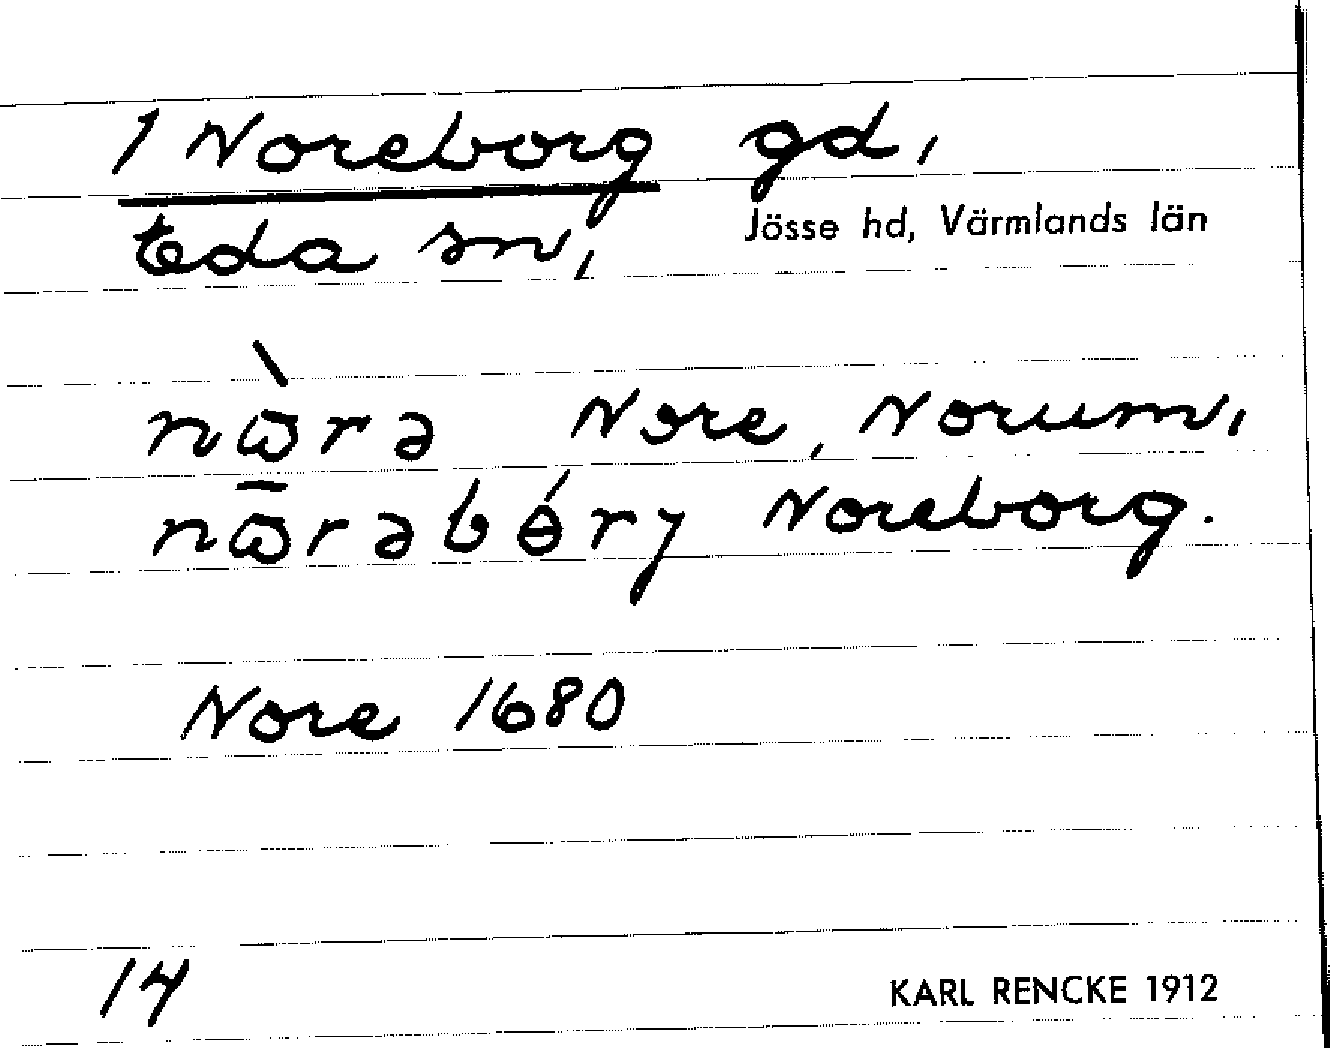 1 Noreborg gd,
Eda sn, Jösse hd, Värmlands län
nɷ̄̀rə Nore, Norum,
nɷ̄rəbɵ́rγ Noreborg.
Nore 1680
14 KARL RENCKE 1912